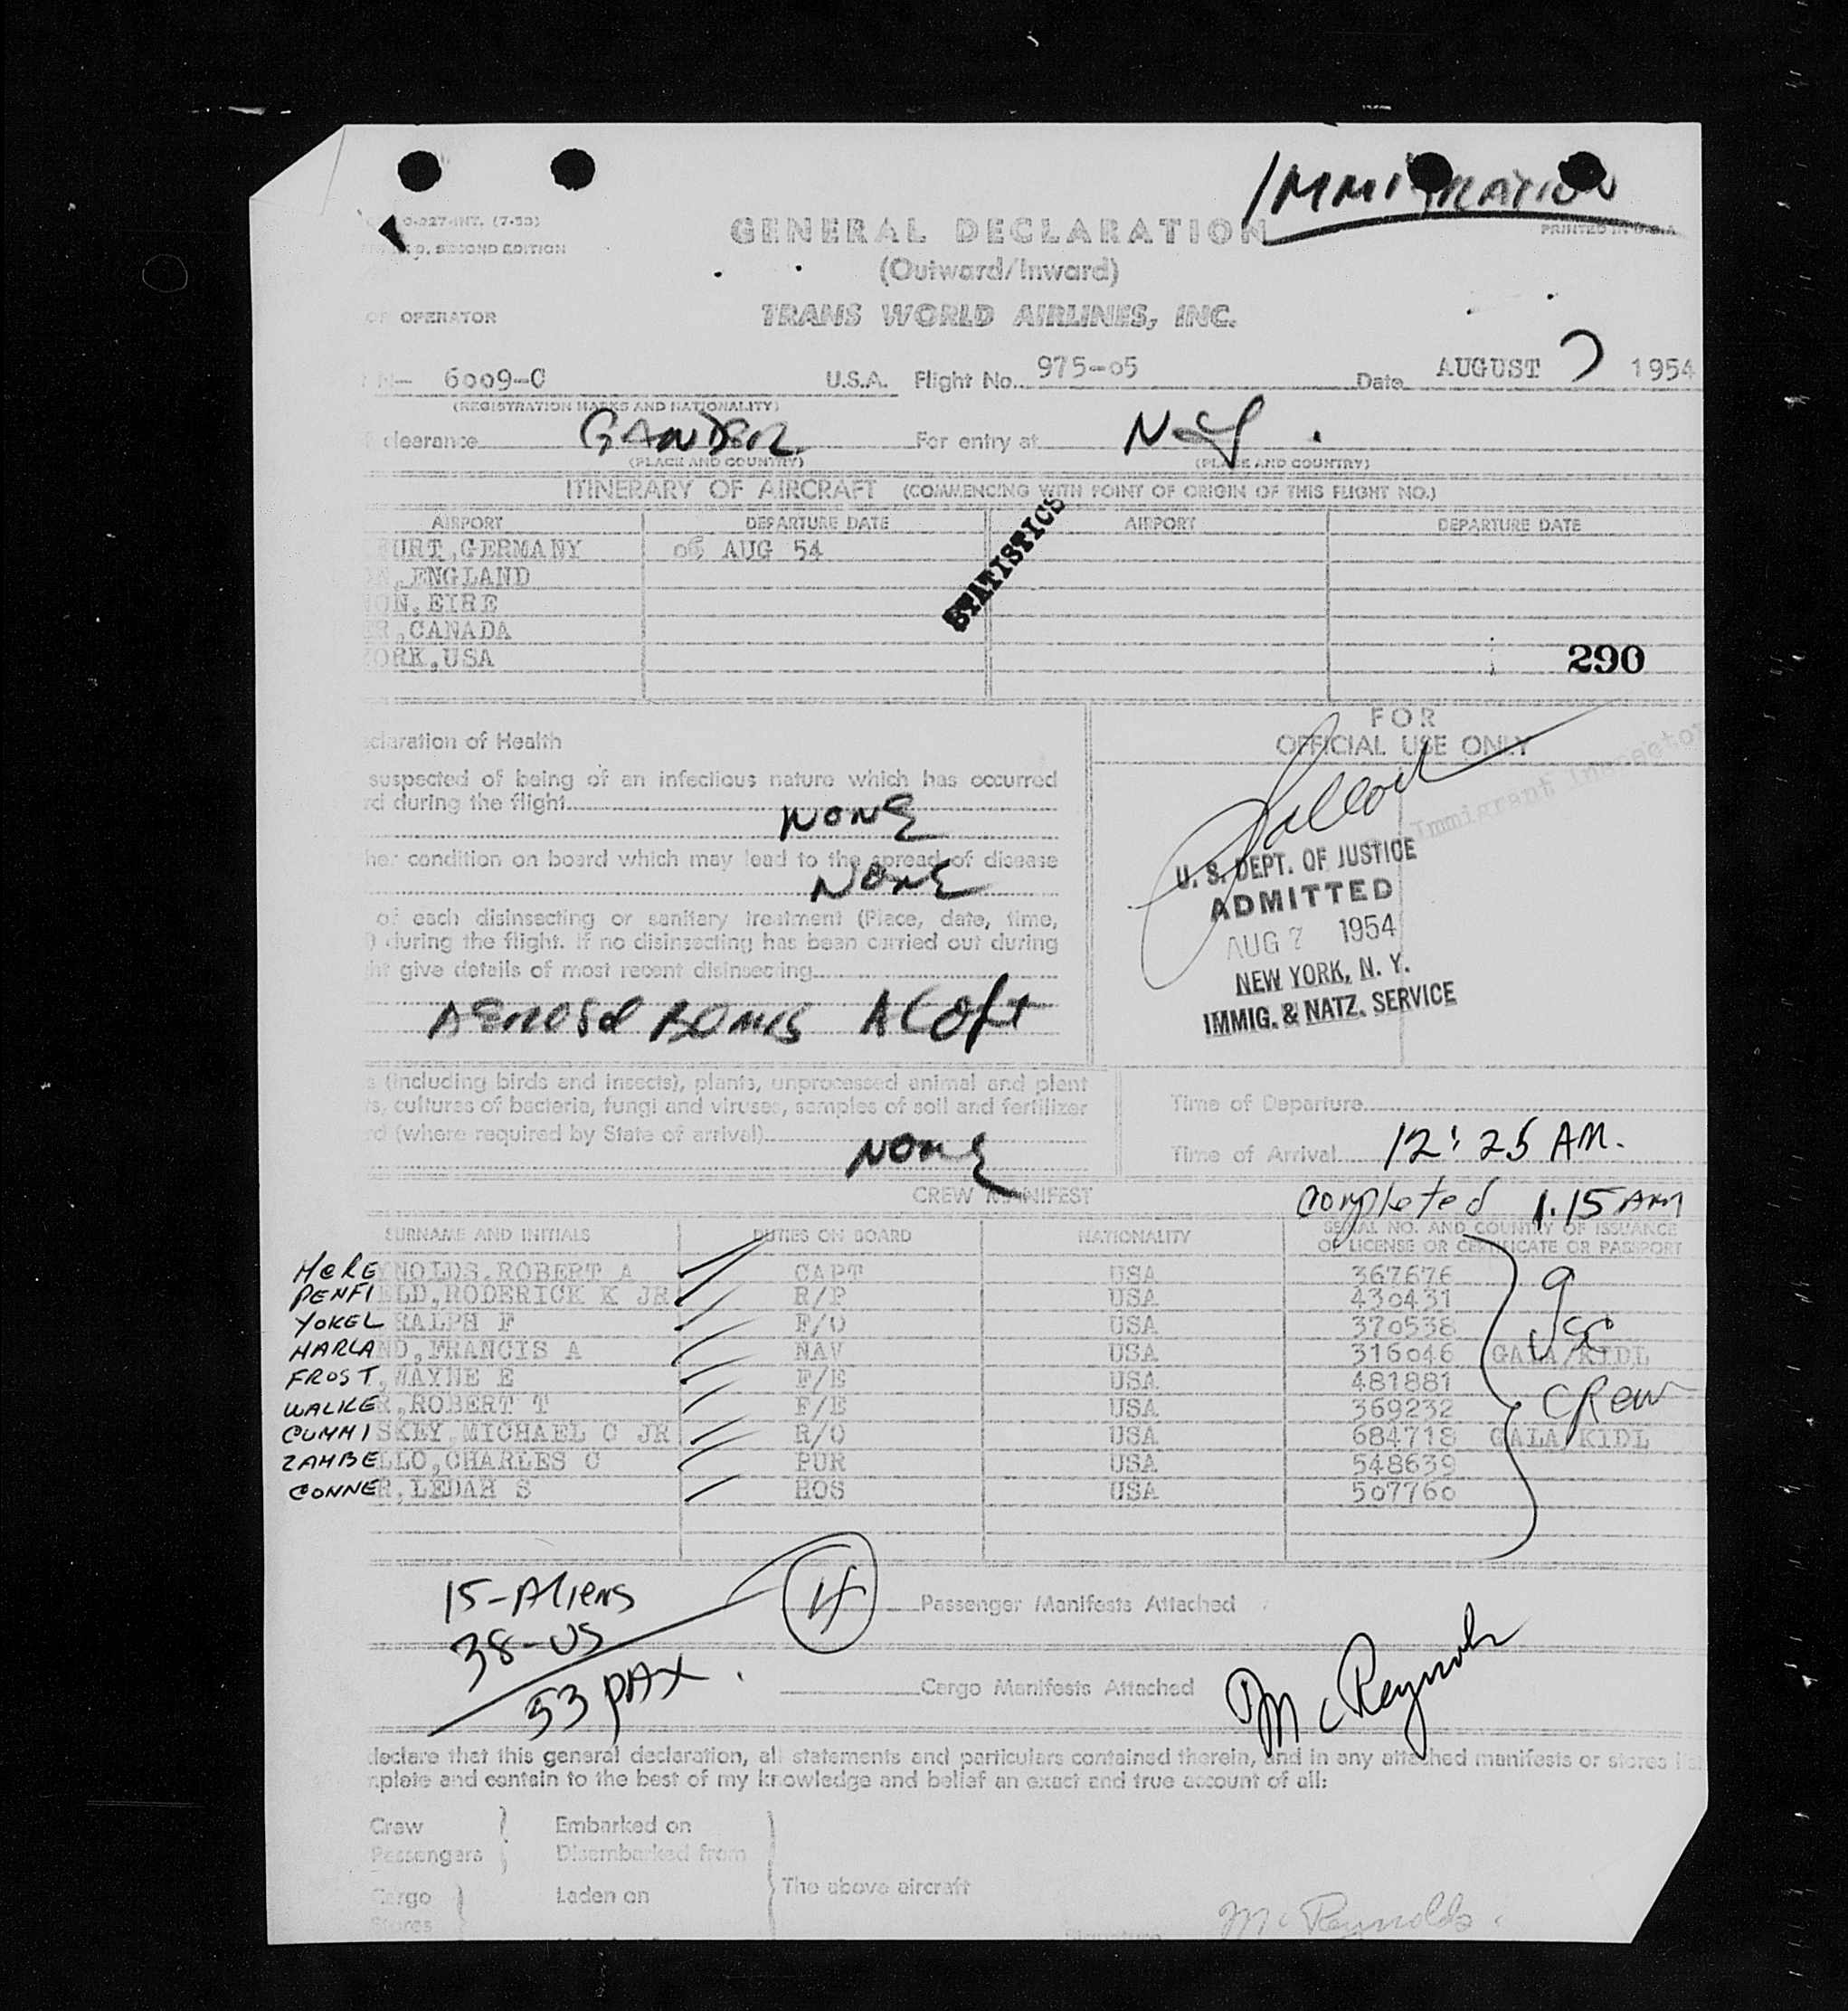 IMMIGRATION
0-227-INT. (7-53)
D, SECOND EDITION
GENERAL DECLARATION
PRINTED IN U.S.A
(Outward/Inward)
OF OPERATOR
TRANS WORLD AIRLINES, INC.
N- 6009-C U.S.A. Flight No. 975-05 Date AUGUST 7 1954
(REGISTRATION MARKS AND NATIONALITY)
clearance GANDER For entry at N-Y.
(PLACE AND COUNTRY) (PLACE AND COUNTRY)
ITINERARY OF AIRCRAFT (COMMENCING WITH POINT OF ORIGIN OF THIS FLIGHT NO.)
AIRPORT DEPARTURE DATE AIRPORT DEPARTURE DATE
URT, GERMANY AUG 54
STATISTICS
N, ENGLAND
NON, EIRE
ER, CANADA
YORK, USA
290
FOR
OFFICIAL USE ONLY
claration of Health
Immigrant Inspector
suspected of being of an infectious nature which has occurred
rd during the flight
NONE
her condition on board which may lead to the spread of disease
NONE
of each disinsecting or sanitary treatment (Place, date, time,
) during the flight. If no disinsecting has been carried out during
ht give details of most recent disinsecting
AEROSOL BOMBS ALOFT
U. S. DEPT. OF JUSTICE
ADMITTED
AUG 7 1954
NEW YORK, N. Y.
IMMIG. & NATZ. SERVICE
s (including birds and insects), plants, unprocessed animal and plant
ts, cultures of bacteria, fungi and viruses, samples of soil and fertilizer
rd (where required by State of arrival)
NONE
Time of Departure
Time of Arrival 12:25 AM.
completed 1.15 AM
CREW MANIFEST
SURNAME AND INITIALS DUTIES ON BOARD NATIONALITY SERIAL NO. AND COUNTRY OF ISSUANCE
OF LICENSE OR CERTIFICATE OR PASSPORT
McREYNOLDS, ROBERT A CAPT USA 367676
PENFIELD, RODERICK K JR R/P USA 430431
YOKEL RALPH F F/O USA 370538
HARLAND, FRANCIS A NAV USA 316046 GALA/KIDL
FROST, WAYNE E F/E USA 481881
WALKER, ROBERT T F/E USA 369232
CUMMISKEY, MICHAEL C JR R/O USA 684718 GALA/KIDL
ZAMBELLO, CHARLES C PUR USA 548639
CONNER, LEDAH S HOS USA 507760
9
USC
CREW
15-Aliens
38-US
53 PAX.
Passenger Manifests Attached
Cargo Manifests Attached
McReynolds
declare that this general declaration, all statements and particulars contained therein, and in any attached manifests or stores
plete and contain to the best of my knowledge and belief an exact and true account of all:
Crew Embarked on
Passengers Disembarked from
The above aircraft
Cargo Laden on
Stores
McReynolds.
Signature